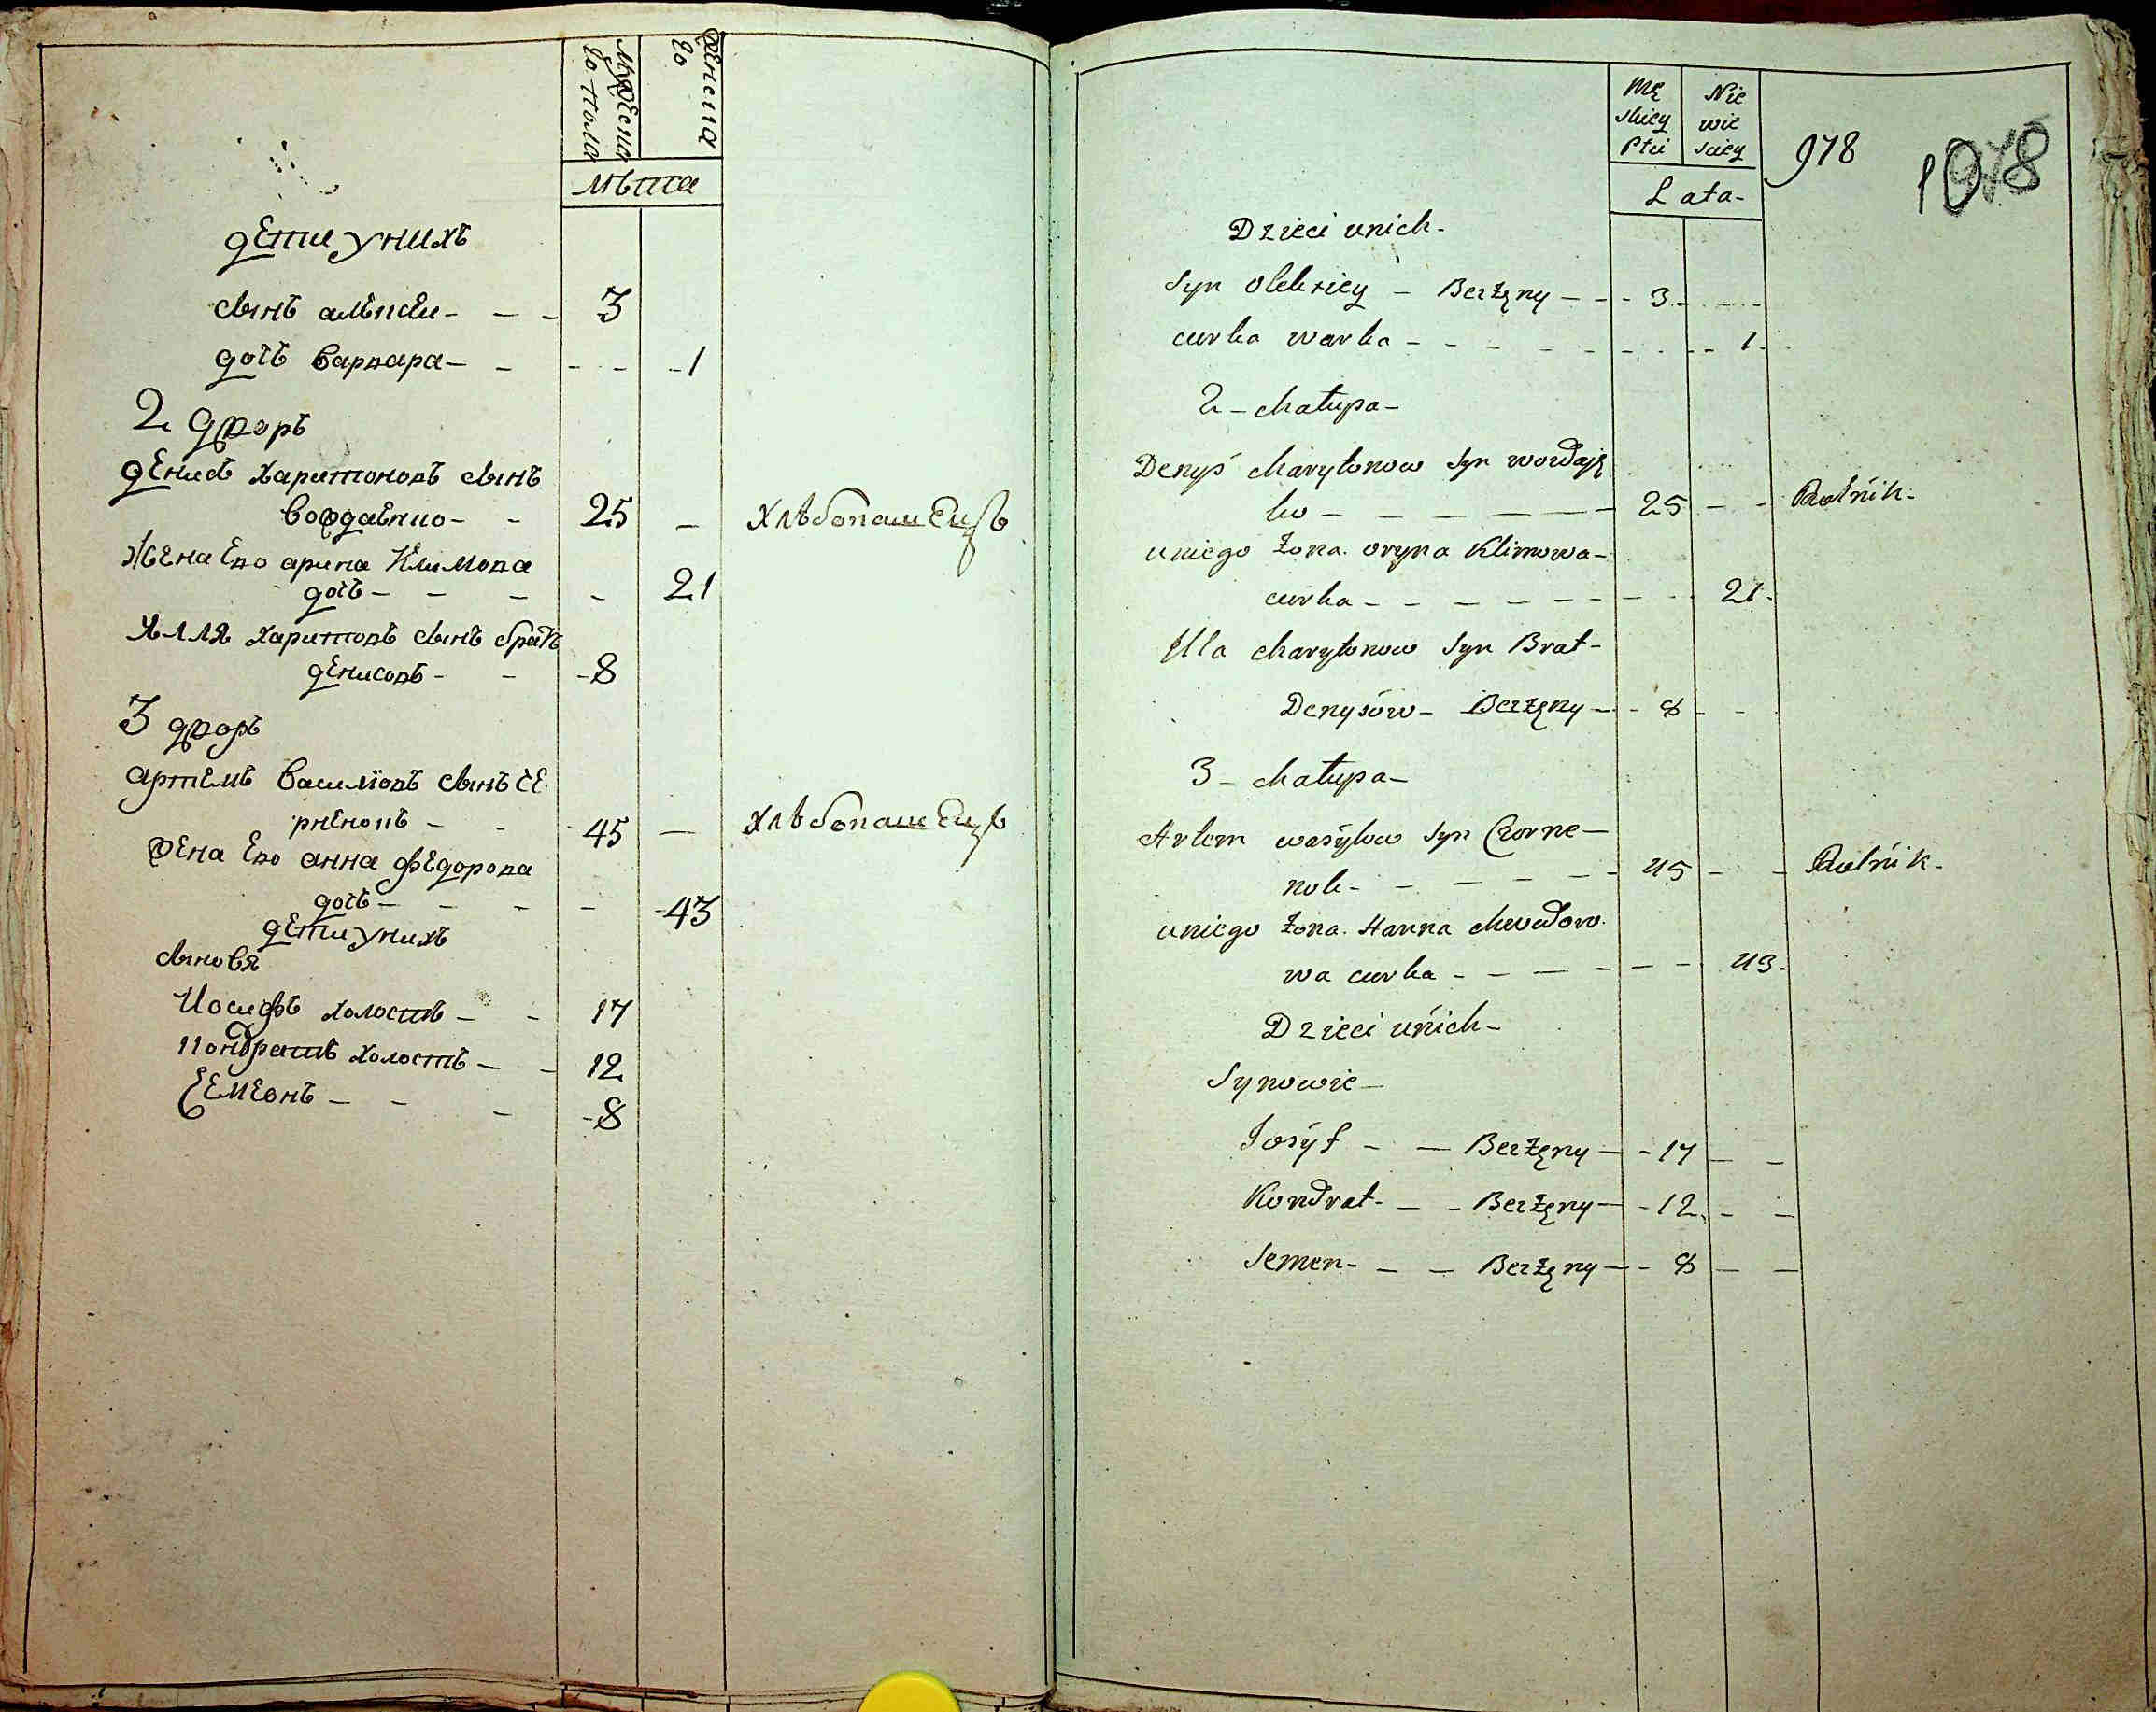 Мужеска
го пола
Женска
го
Лѣта
дети у нихъ
сынъ алексѣи - - - 3
дочь варвара - - - - - 1
2 дворъ
денисъ харитоновъ сынъ
вовдаенко - - 25 - хлѣбопашецъ
Жена Ево арина Климова
дочь - - - - 21
Илля харитовъ сынъ братъ
денисовъ - - - 8
3 дворъ
артемъ василіовъ сынъ че
рненокъ - - 45 - хлѣбопашецъ
жена Ево анна федорова
дочь - - - - - 43
дети у нихъ
сыновя
Иосифъ холостъ - - 17
Кондратъ холостъ - - 12
Семеонъ - - - - 8
Mę
skiey
Płci
Nie
wie
sciey
Lata -
978
1078
Dzieci unich -
Syn Olekśiey - Bezżęny - - - 3 - - - -
curka warka - - - - - - - - - - 1 -
2 - chałupa -
Denyś charytonow Syn wowdaję
ko - - - - - - 25 - - Rolnik -
uniego żona. oryna Klimowa -
curka - - - - - - - - 21 -
Illa charytonow Syn Brat -
Denysów - Bezżęny - - 8 - -
3 - chałupa -
Artem wasylow Syn Czorne -
nok - - - - - - 45 - - Rolnik -
uniego żona. Hanna chwedorо
wa curka - - - - - - 43 -
Dzieci unich -
Synowie -
Josyf - - Bezżęny - - 17 - -
Kondrat - - - Bezżęny - - 12 - -
Semen - - - Bezżęny - - 8 - -